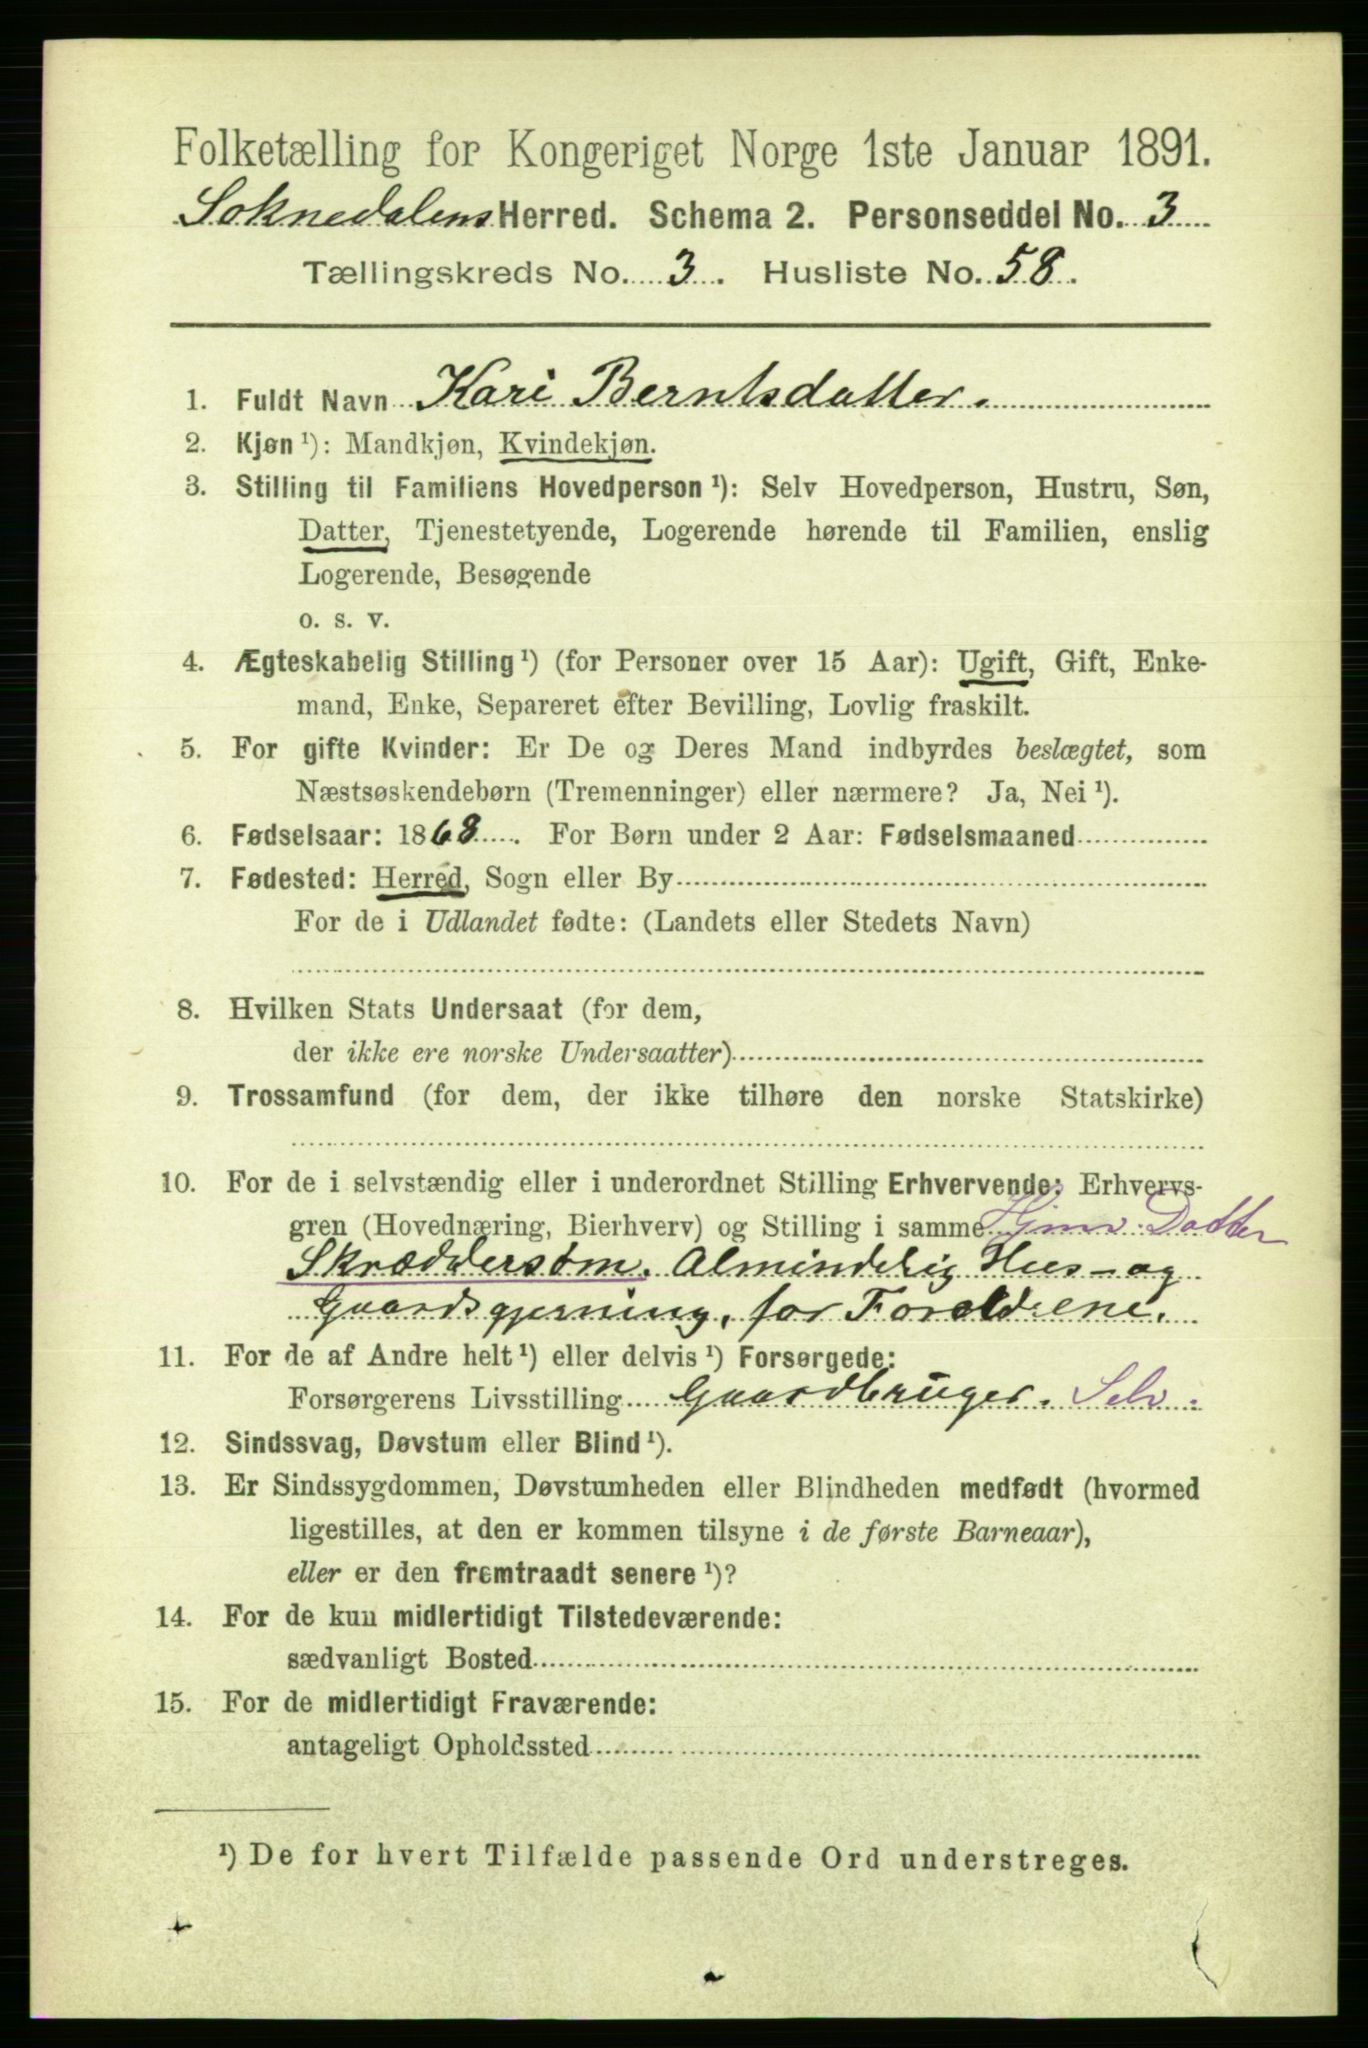 Folketælling for Kongeriget Norge 1ste Januar 1891.
Soknedalens Herred. Schema 2. Personseddel No. 3
Tællingskreds No. 3. Husliste No. 58.
1. Fuldt Navn Kari Berntsdatter.
2. Kjøn ¹): Mandkjøn, Kvindekjøn.
3. Stilling til Familiens Hovedperson ¹): Selv Hovedperson, Hustru, Søn,
Datter, Tjenestetyende, Logerende hørende til Familien, enslig
Logerende, Besøgende
o. s. v.
4. Ægteskabelig Stilling ¹) (for Personer over 15 Aar): Ugift, Gift, Enke-
mand, Enke, Separeret efter Bevilling, Lovlig fraskilt.
5. For gifte Kvinder: Er De og Deres Mand indbyrdes beslægtet, som
Næstsøskendebørn (Tremenninger) eller nærmere? Ja, Nei ¹).
6. Fødselsaar: 1868. For Børn under 2 Aar: Fødselsmaaned
7. Fødested: Herred, Sogn eller By
For de i Udlandet fødte: (Landets eller Stedets Navn)
8. Hvilken Stats Undersaat (for dem,
der ikke ere norske Undersaatter)
9. Trossamfund (for dem, der ikke tilhøre den norske Statskirke)
10. For de i selvstændig eller i underordnet Stilling Erhvervende: Erhvervs-
gren (Hovednæring, Bierhverv) og Stilling i samme Hjmv. Datter
Skræddersøm. Almindelig Hus- og
Gaardsgjerning, for Forældrene.
11. For de af Andre helt ¹) eller delvis ¹) Forsørgede:
Forsørgerens Livsstilling Gaardbruger. Selv.
12. Sindssvag, Døvstum eller Blind ¹).
13. Er Sindssygdommen, Døvstumheden eller Blindheden medfødt (hvormed
ligestilles, at den er kommen tilsyne i de første Barneaar),
eller er den fremtraadt senere ¹)?
14. For de kun midlertidigt Tilstedeværende:
sædvanligt Bosted
15. For de midlertidigt Fraværende:
antageligt Opholdssted
¹) De for hvert Tilfælde passende Ord understreges.